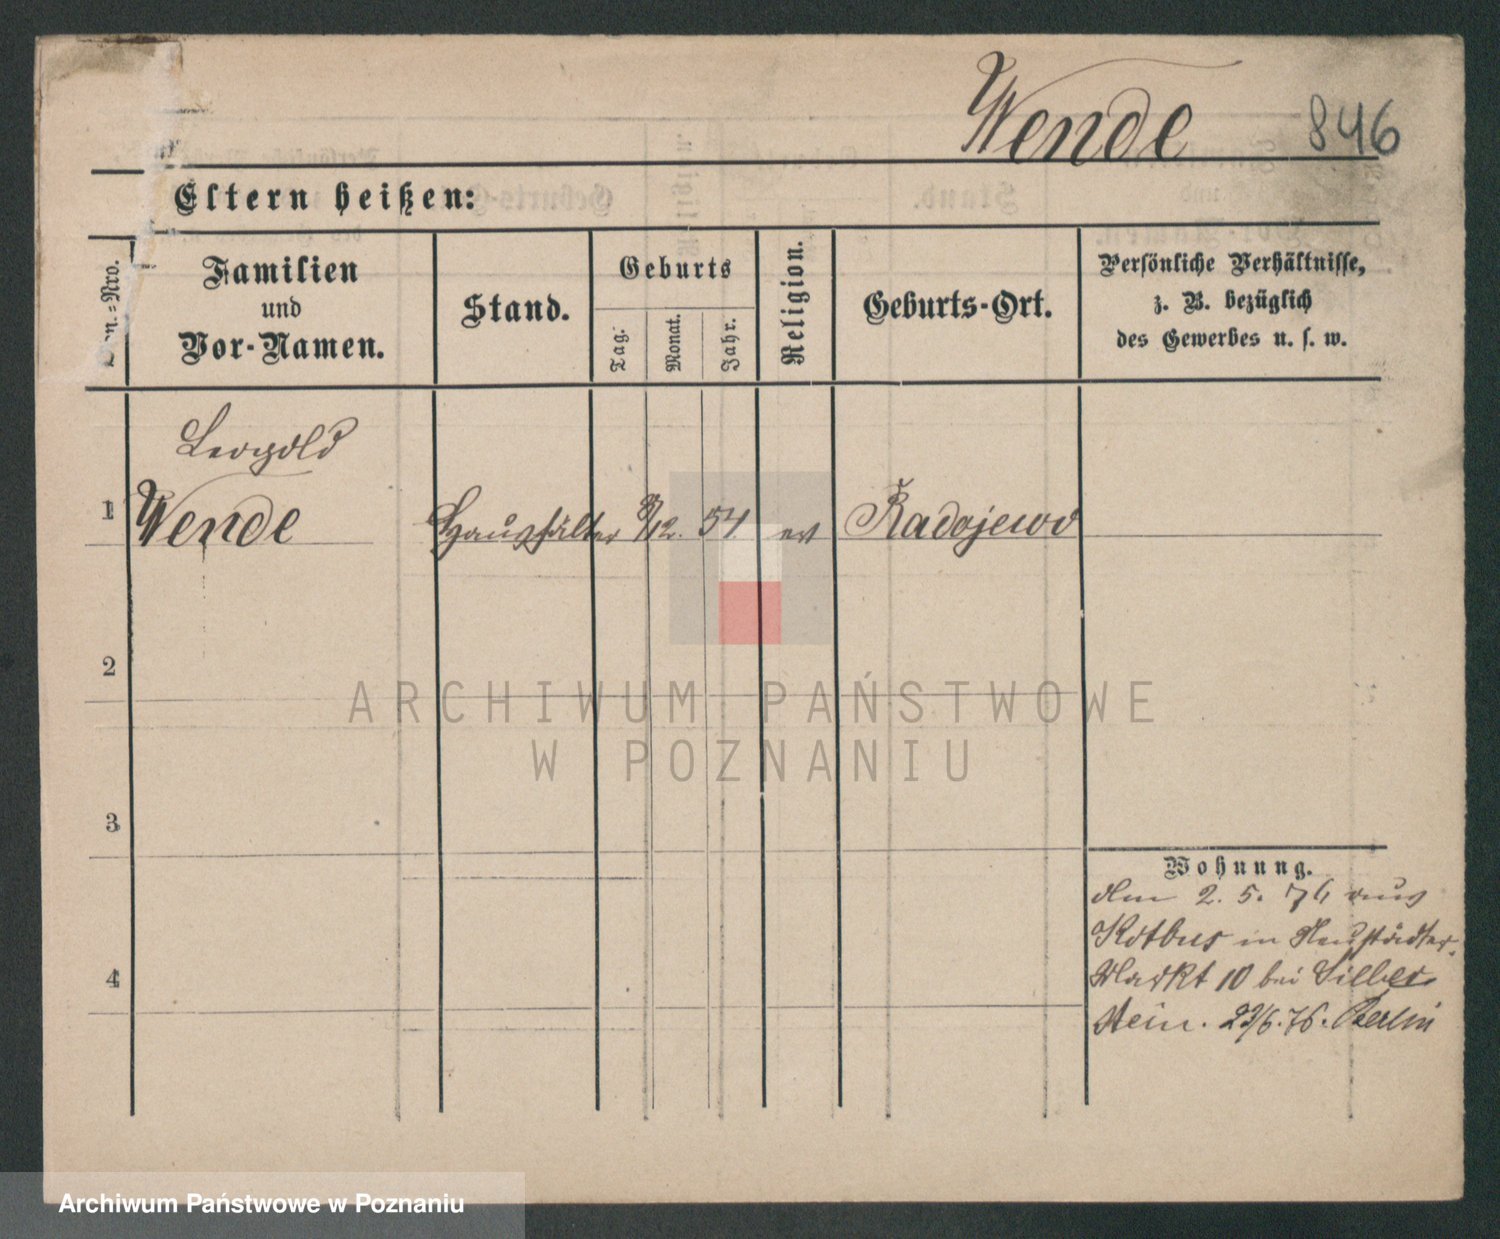 Wende 846
Eltern heißen:
Familien
und
Vor-Namen.
Stand.
Geburts
Tag.
Monat.
Jahr.
Religion.
Geburts-Ort.
Persönliche Verhältnisse,
z. B. bezüglich
des Gewerbes u. s. w.
Leopold
1 Wende Haushälter 9/12. 54 ev Radojewo
2
ARCHIWUM PAŃSTWOWE
W POZNANIU
3
4
Wohnung.
den 2. 5. 76 aus
Kotbus in Neustädter
Markt 10 bei Silber
stein. 23/6. 76. Berlin
Archiwum Państwowe w Poznaniu